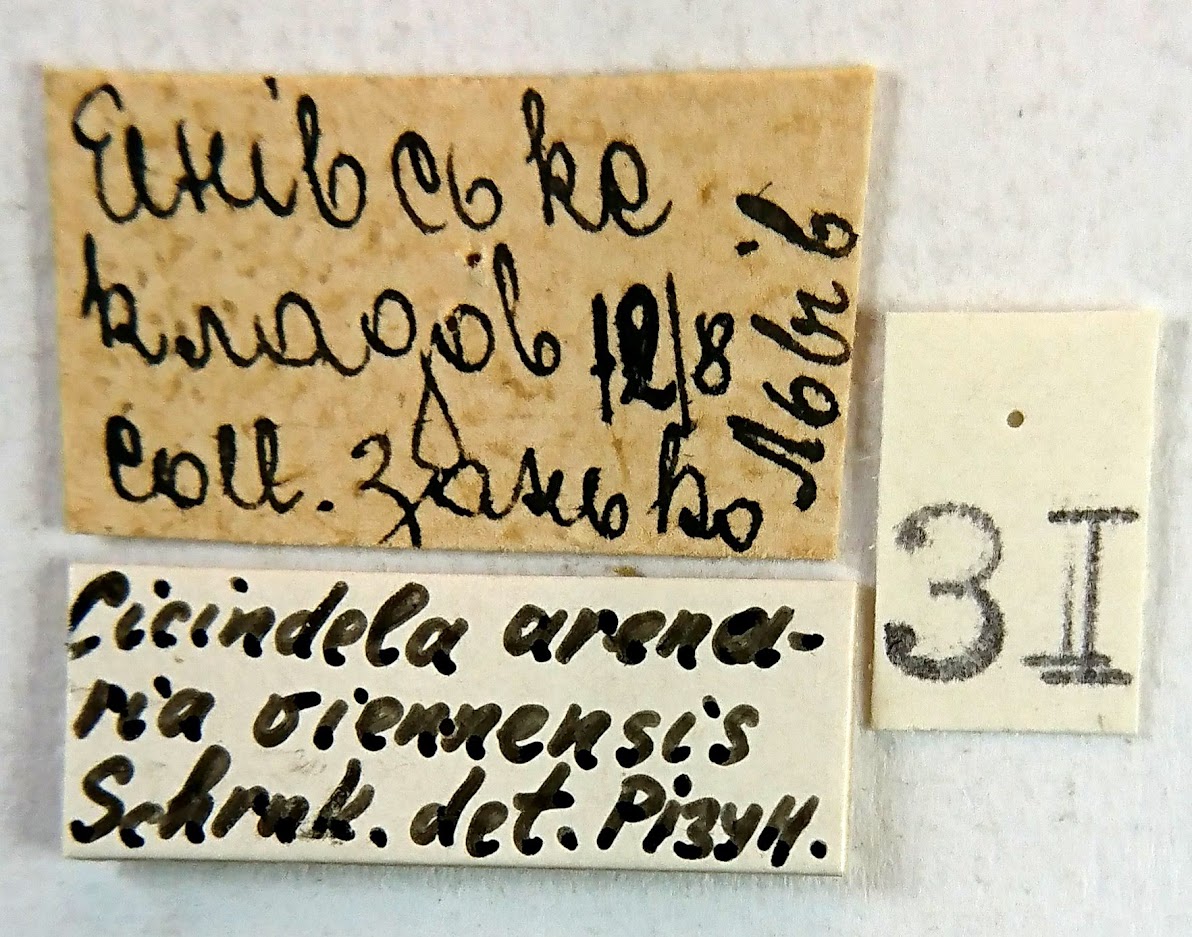 Янівське
кладов. 12/8
coll. Занько
Львів
Cicindela arena-
ria viennensis
Schrnk. det. Різун.
3I